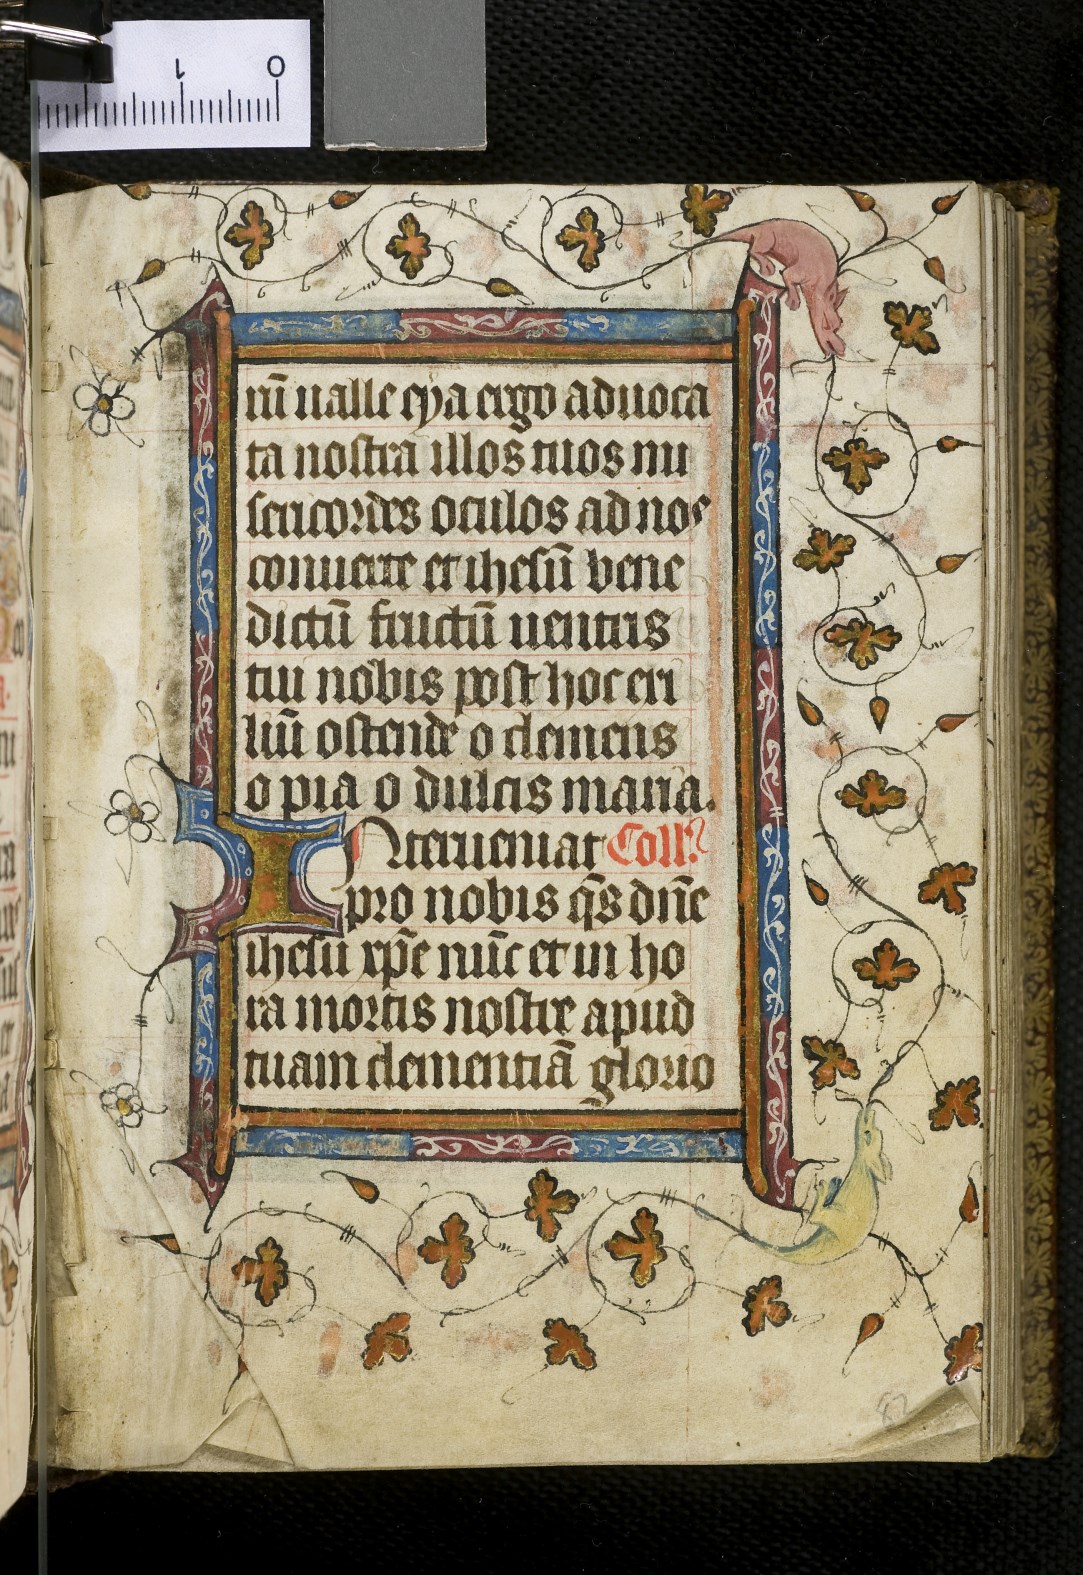 1 0
rū ualle eya ergo aduoca
ta nostra illos tuos mi
sericordes oculos ad nos
conuerte et ihesū bene
dictū fructū uentris
tui nobis post hoc exi
liū ostende o clemens
o pia o dulcis maria.
Interueniat Coll.
pro nobis q̄s dn̄e
ihesu xp̄e nūc et in ho
ra mortis nostre apud
tuam clementiā glorio